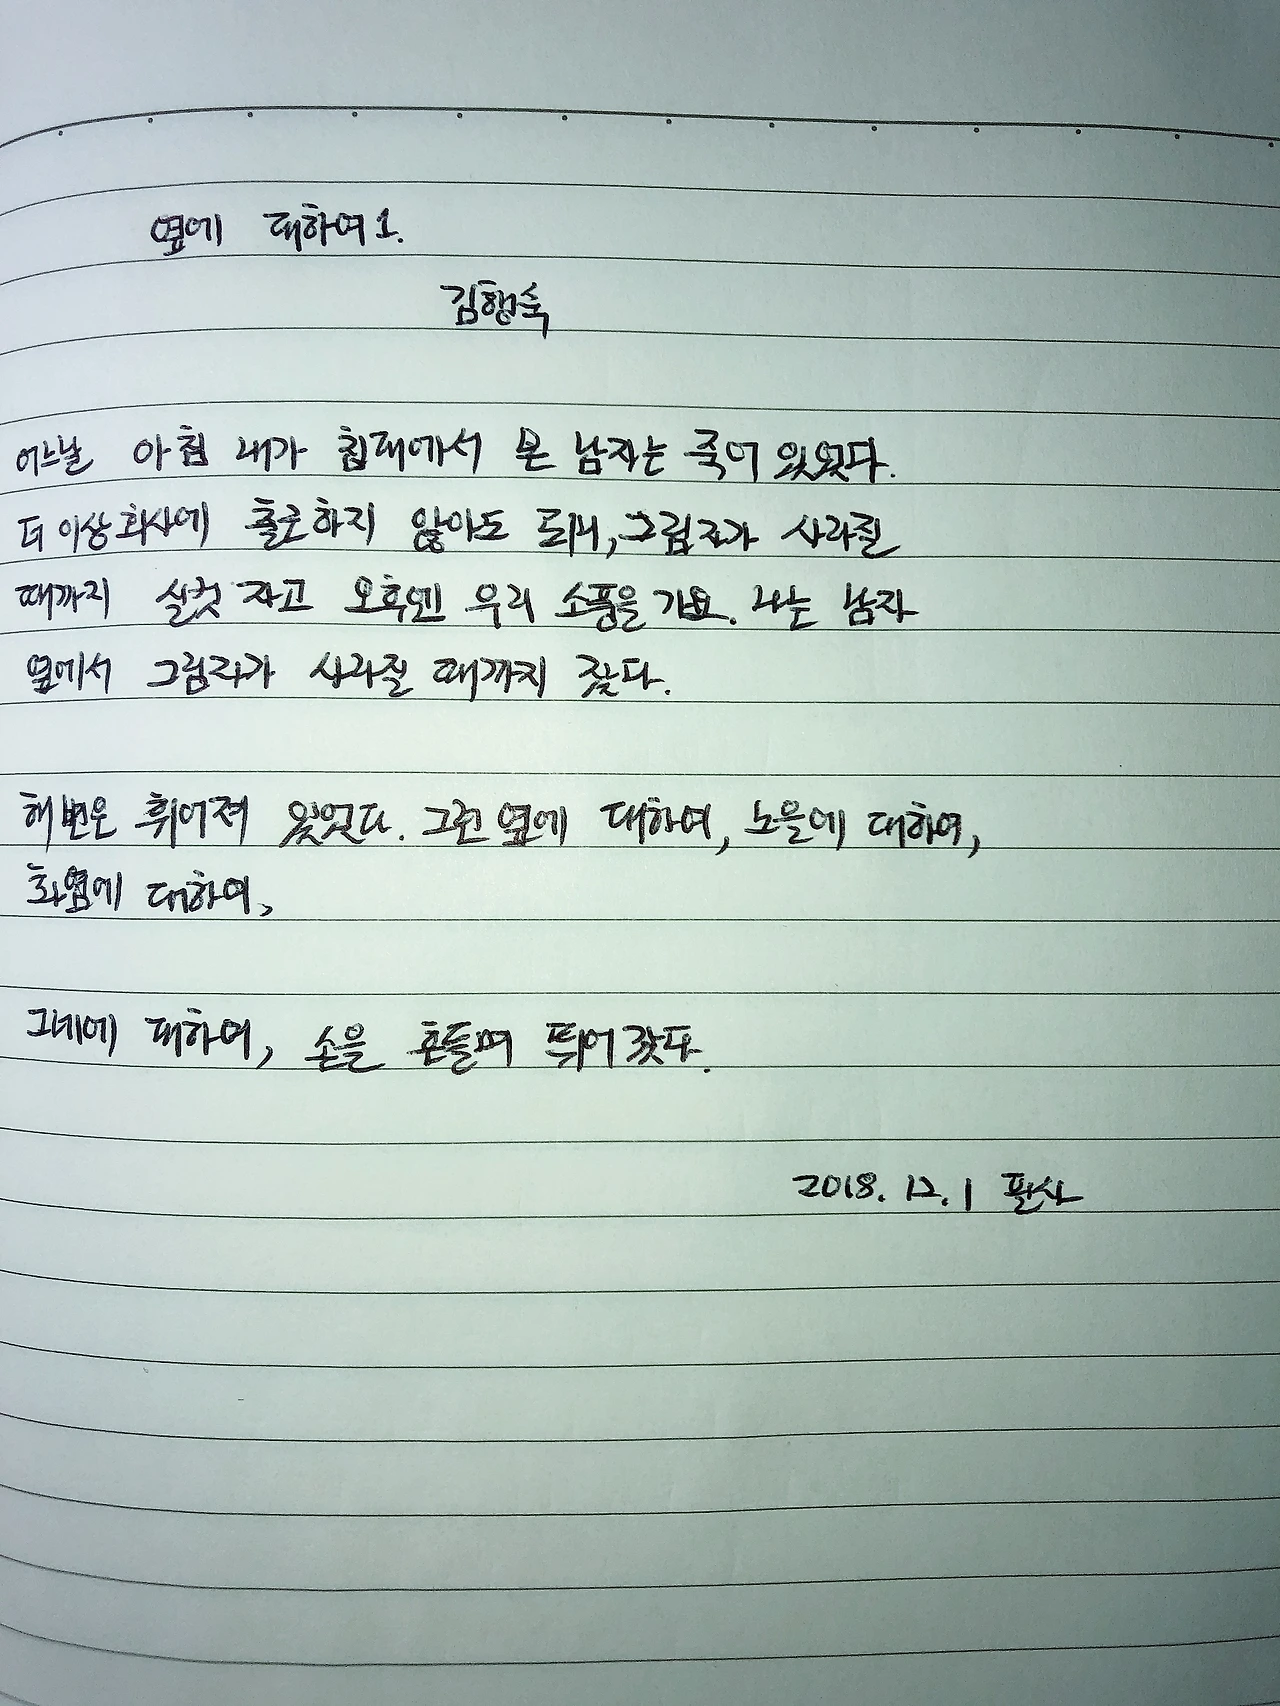 옆에 대하여 1.
김행숙
어느날 아침 내가 침대에서 본 남자는 죽어 있었다.
더 이상 회사에 출근하지 않아도 되니, 그림자가 사라질
때까지 실컷 자고 오후엔 우리 소풍을 가요. 나는 남자
옆에서 그림자가 사라질 때까지 잤다.
해변은 휘어져 있었다. 그런 옆에 대하여, 노을에 대하여,
화염에 대하여,
그네에 대하여, 손을 흔들며 뛰어갔다.
2018. 12. 1 필사